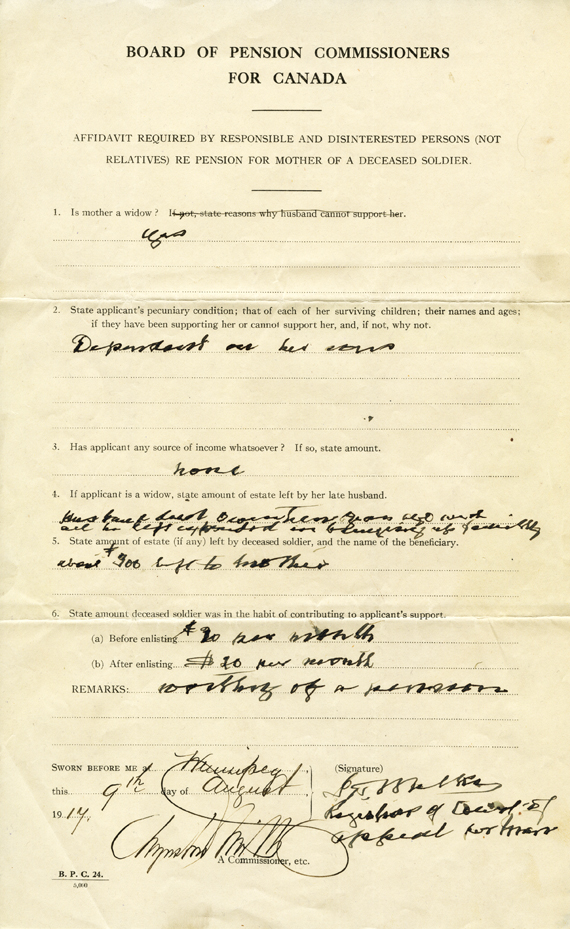 BOARD OF PENSION COMMISSIONERS
FOR CANADA
AFFIDAVIT REQUIRED BY RESPONSIBLE AND DISINTERESTED PERSONS (NOT
RELATIVES) RE PENSION FOR MOTHER OF A DECEASED SOLDIER.
1. Is mother a widow? If not, state reasons why husband cannot support her.
yes
2. State applicant's pecuniary condition; that of each of her surviving children; their names and ages;
if they have been supporting her or cannot support her, and, if not, why not.
Dependant on her sons
3. Has applicant any source of income whatsoever? If so, state amount.
none
4. If applicant is a widow, state amount of estate left by her late husband.
Husband died years ago and
all he left expended in bringing up family
5. State amount of estate (if any) left by deceased soldier, and the name of the beneficiary.
about $900 left to mother
6. State amount deceased soldier was in the habit of contributing to applicant's support.
(a) Before enlisting $20 per month
(b) After enlisting $20 per month
REMARKS: worthy of a pension
SWORN BEFORE ME at Winnipeg
this 9th day of August
1917.
(Signature)
Registrar of Court of
appeal for
A Commissioner, etc.
B. P. C. 24.
5,000